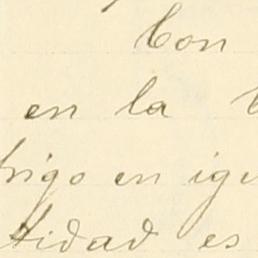 Con
en la
trigo en igu
tidad es